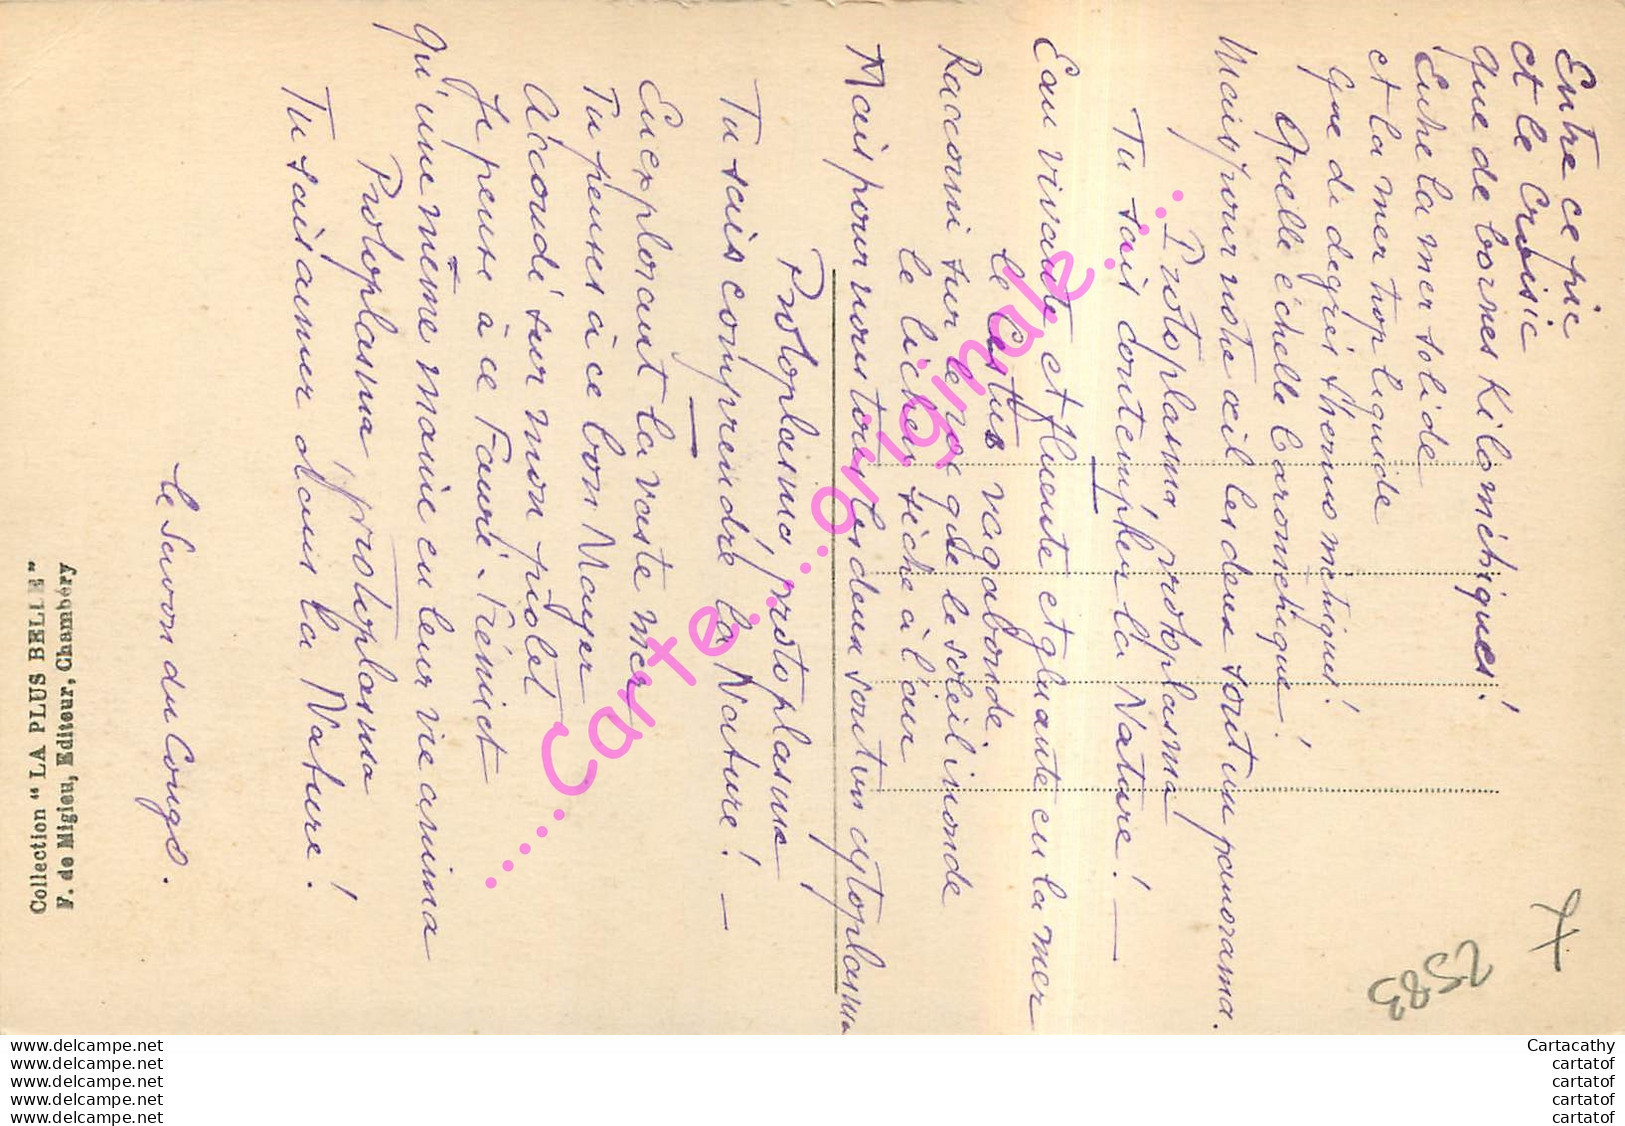 Entre ce pic
et le Croisic
que de bornes Kilométriques!
Entre la mer solide
et la mer trop liquide
que de degrés thermométriques!
Quelle échelle barométrique!
Mais pour notre œil les deux sont un panorama.
Protoplasma protoplasma
Tu sais contempler la Nature! —
Eau vivante et fluente et gluante en la mer
le Cestus vagabonde
Racorni sur le roc que le soleil inonde
le lichen sèche à l'air
Mais pour nous tous les deux sont un cytoplasma
Protoplasma, protoplasma
Tu sais comprendre la Nature! —
En explorant la vaste mer
Tu penses à ce bon Mayer
Accoudé sur mon piolet
Je pense à ce Fauré-Frémiet
Qu'une même manie en leur vie anima
Protoplasma, protoplasma
Tu sais aimer dans la Nature!
le Savon du Congo.
Collection "LA PLUS BELLE"
F. de Migieu, Editeur, Chambéry
.....Carte.....originale.....
2583
www.delcampe.net
www.delcampe.net
www.delcampe.net
www.delcampe.net
www.delcampe.net
Cartacathy
cartatof
cartatof
cartatof
cartatof